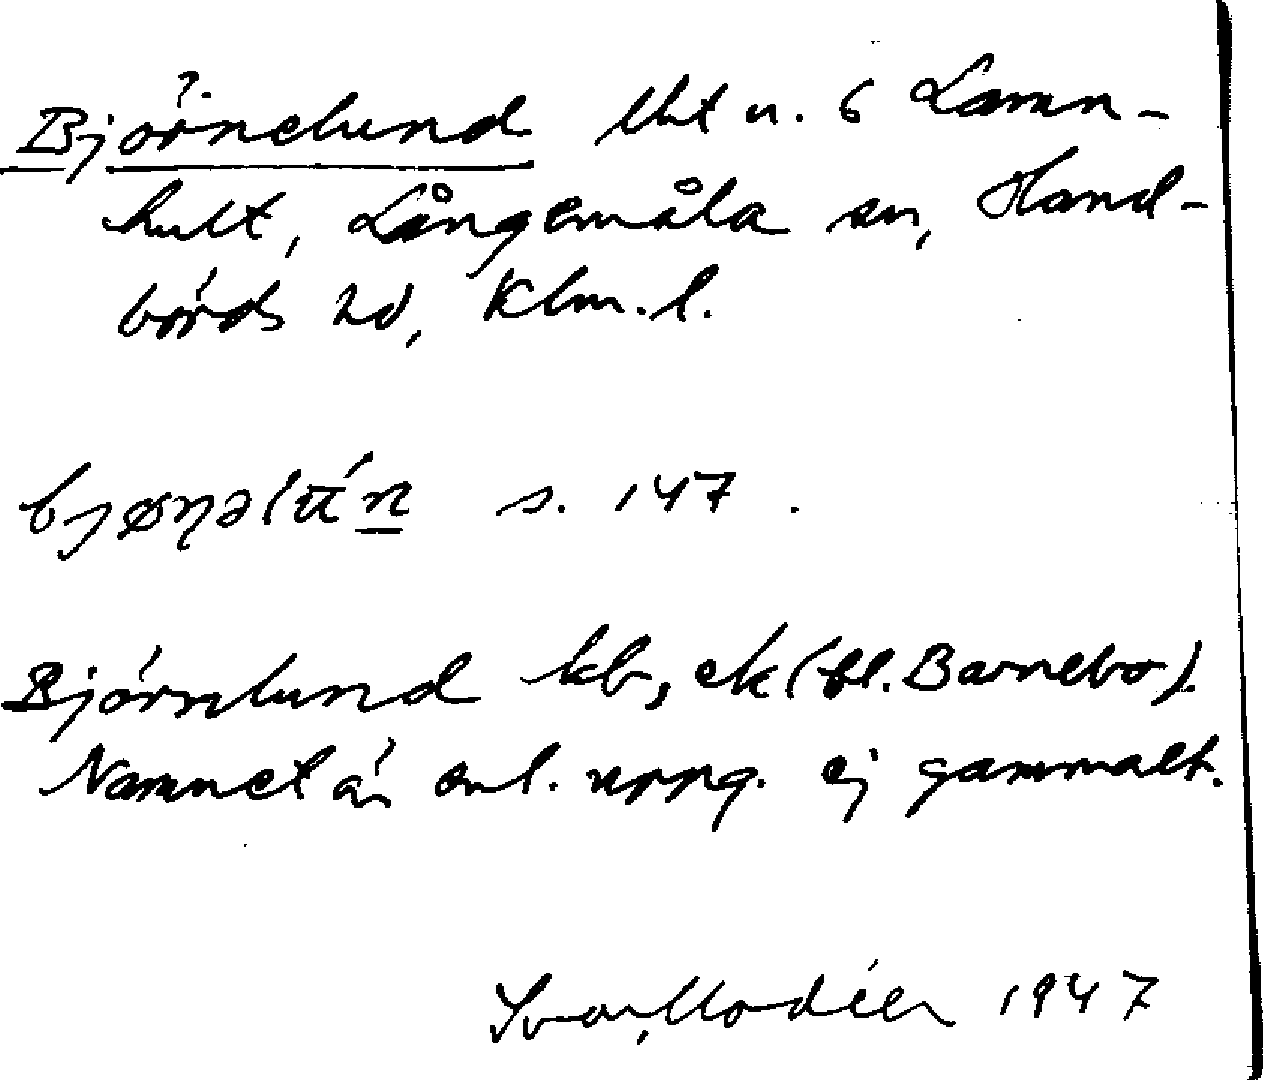 Björnelund lht u. 6 Lamn-
hult, Långemåla sn, Hand-
börds hd, Klm. l.
s. 147.
Björnlund kb, ek (fl. Barnebo).
Namnet är enl. uppg. ej gammalt.
Ivar Modéer 1947